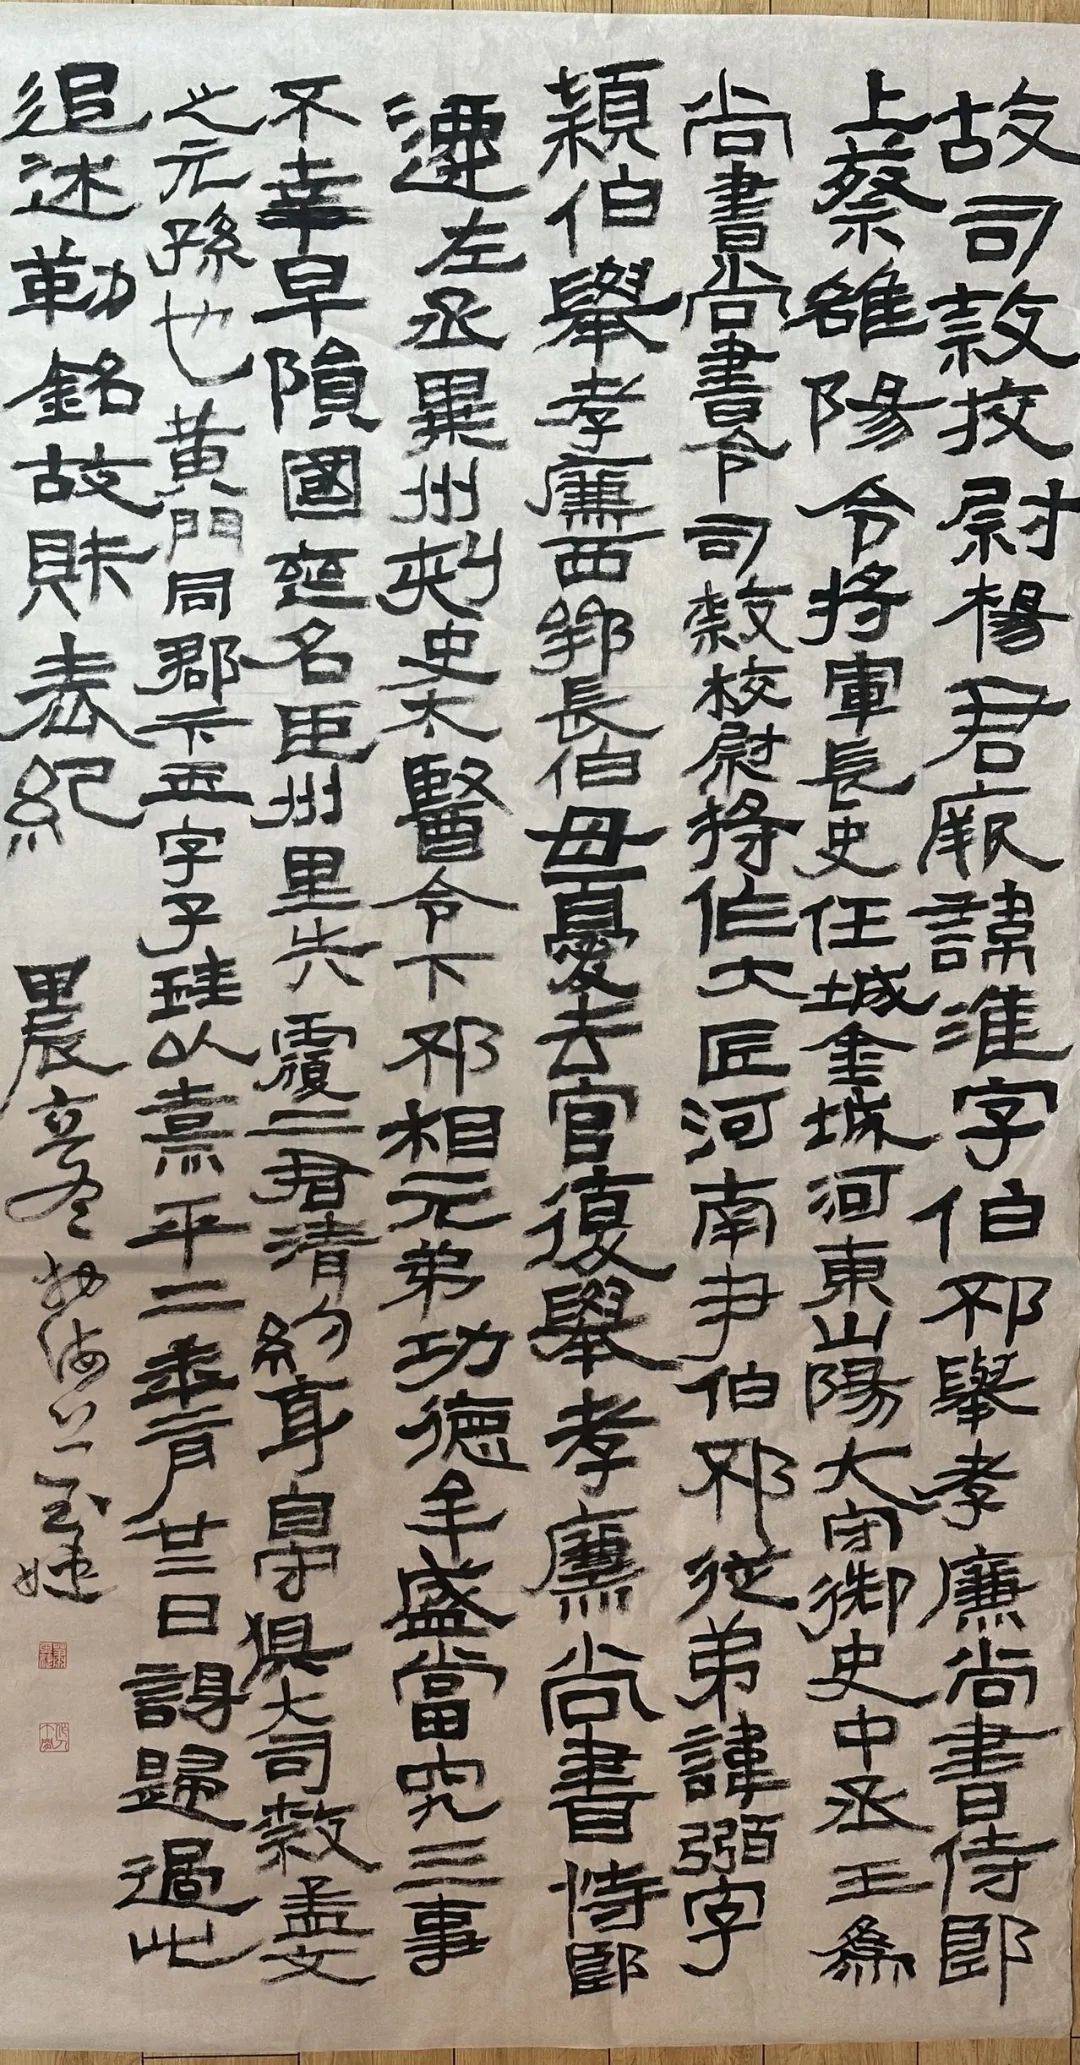 故司㲄挍尉楊君厥諱淮字伯邳舉孝廉尚書侍郎
上蔡雒陽令將軍長史任城金城河東山陽大守御史中丞王為
尚書尚書令司㲄校尉將作大匠河南尹伯邳從弟諱弼字
穎伯舉孝廉西鄂長伯母憂去官復舉孝廉尚書侍郎
遷左丞冀州刾史太醫令下邳相元弟功德牟盛當究三事
不幸早隕國䘮名臣州里失覆二君清約身自守俱大司㲄孟文
之元孫也黃門同郡卞玉字子珪以熹平二年二月廿二日謁歸過此
追述勒銘故財表紀
甲辰立冬勃海